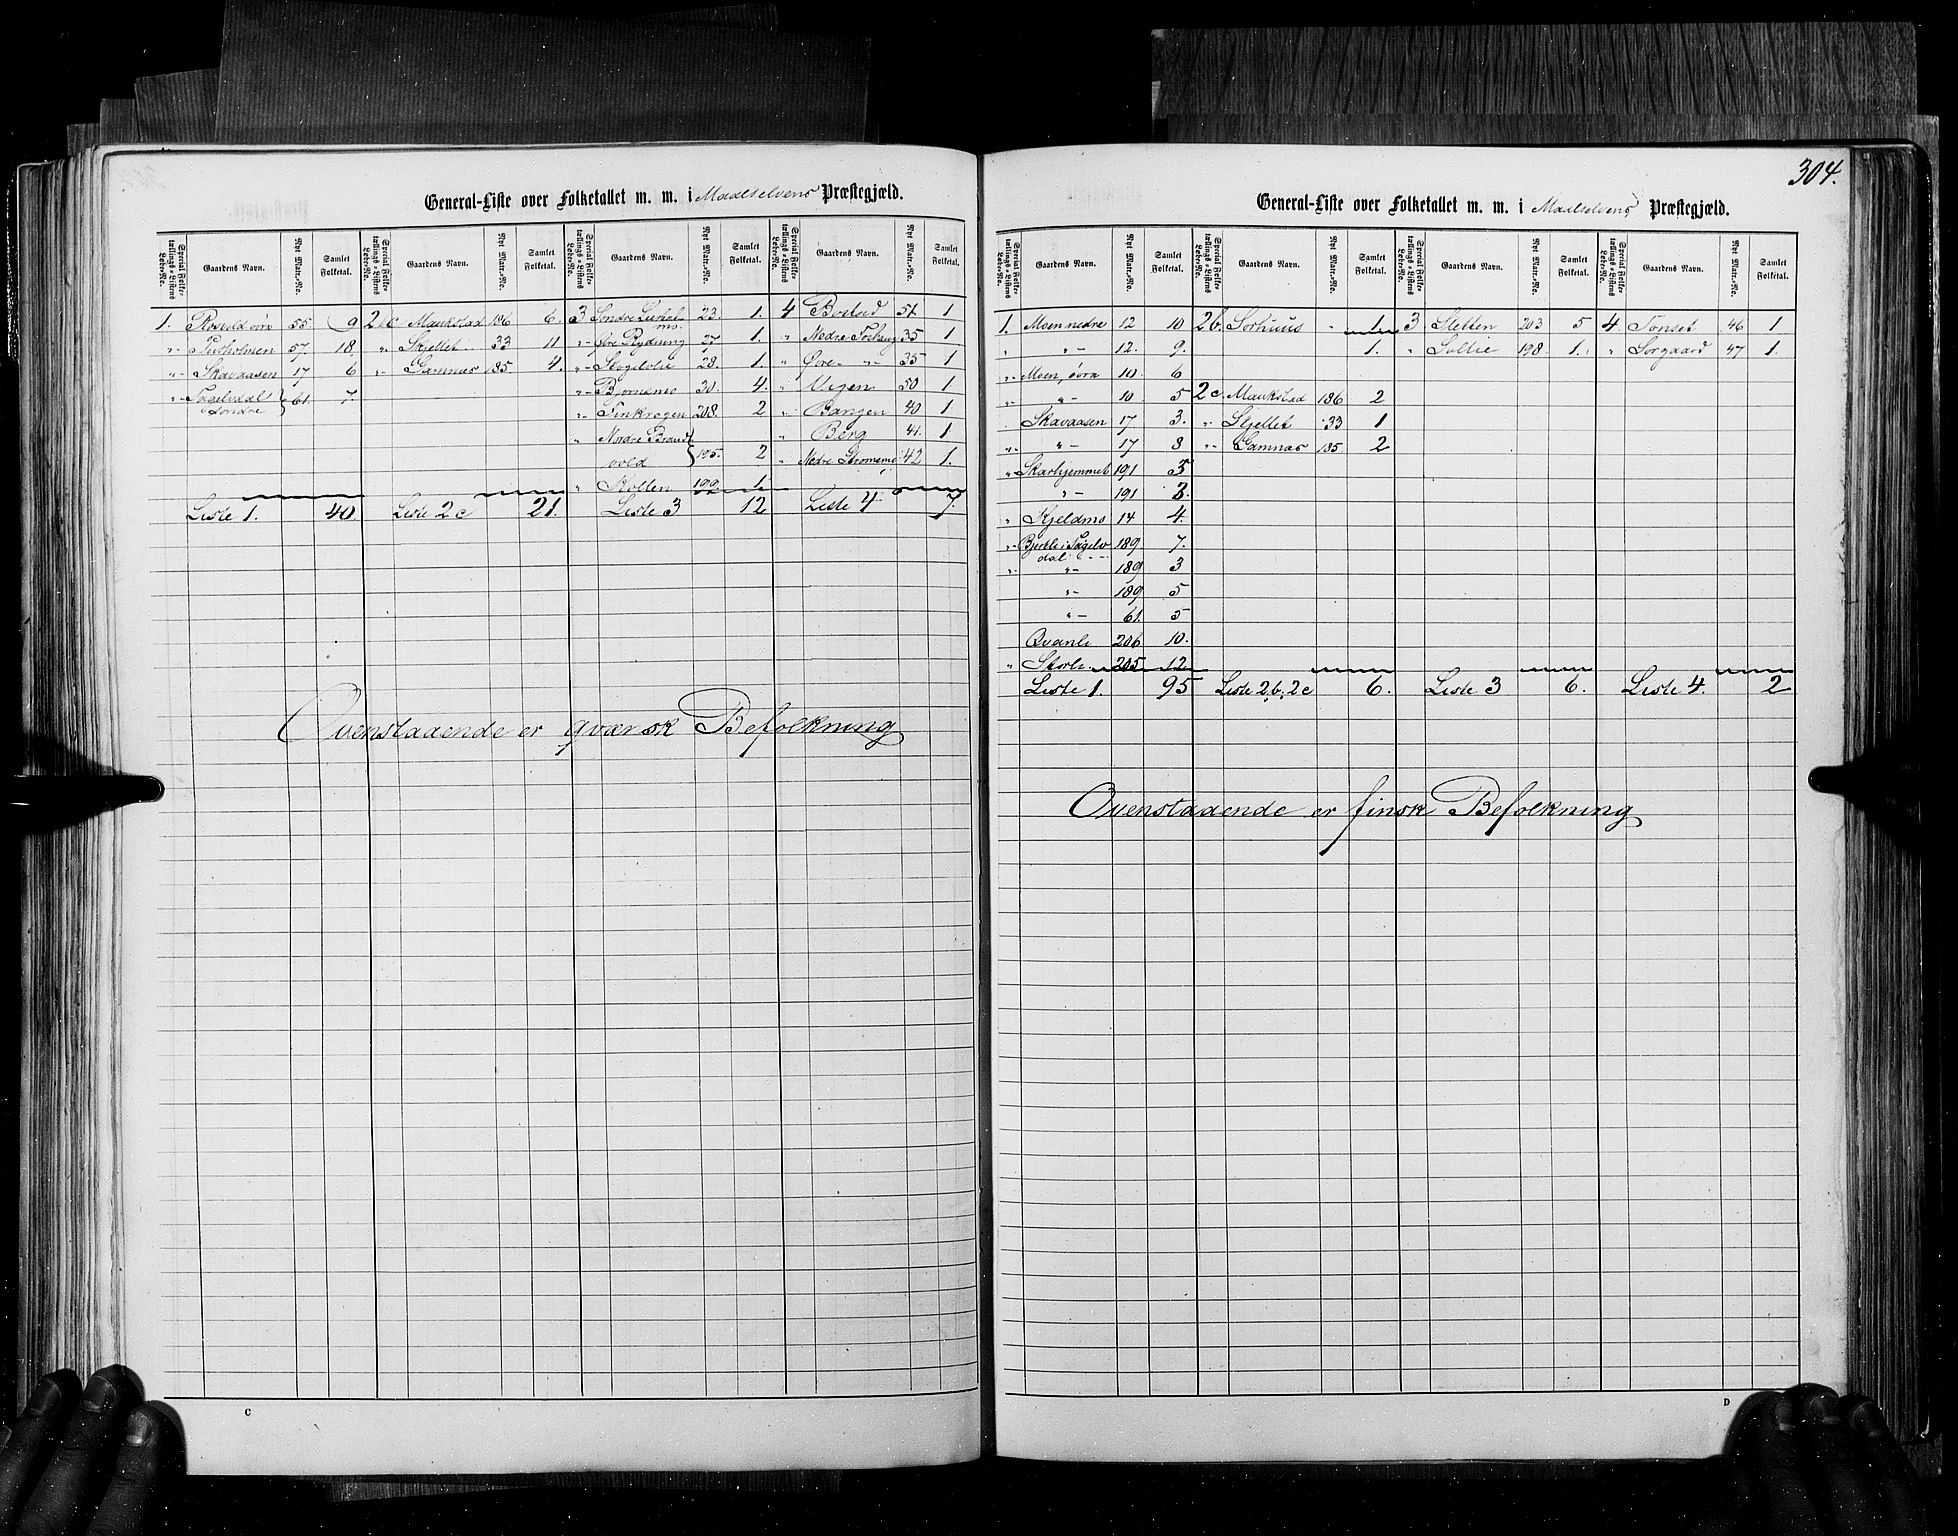 General-Liste over Folketallet m. m. i Maalselvens Præstegjæld.
Special Folketællings-Listens Løbe-No. Gaardens Navn. Nyt Matr.-No. Samlet Folketal. Special Folketællings-Listens Løbe-No. Gaardens Navn. Nyt Matr.-No. Samlet Folketal. Special Folketællings-Listens Løbe-No. Gaardens Navn. Nyt Matr.-No. Samlet Folketal. Special Folketællings-Listens Løbe-No. Gaardens Navn. Nyt Matr.-No. Samlet Folketal.
1. Rosvold øvre 55. 9 2 c Maukstad 186 6. 3 Søndre 23. 1. 4 Bostad 51 1
"- 57. 18 " Skjellet 33 11 "- Øvre Rydning 27 1. " Nedre 35 1
"- Skavaasen 17 6 "- Gamnæs 185 4. "- Skogelvlie 28. 1. " Øvre "- 35 1
"- Sagelvdal søndre } 61. 7. "- Bjørnemo 30. 4. " Vigen 50 1
"- Finkrogen 208. 2 " Bangen 40 1
" Nordre " Berg 41. 1
vold } 195. 2 " Nedre Strømsmo 42 1.
" Kolten 199 1.
Liste 1. 40. Liste 2 c 21. Liste 3 12 Liste 4 7.
Ovenstaaende er qvænsk Befolkning
C
304.
General-Liste over Folketallet m. m. i Maalselvens Præstegjæld.
Special Folketællings-Listens Løbe-No. Gaardens Navn. Nyt Matr.-No. Samlet Folketal. Special Folketællings-Listens Løbe-No. Gaardens Navn. Nyt Matr.-No. Samlet Folketal. Special Folketællings-Listens Løbe-No. Gaardens Navn. Nyt Matr.-No. Samlet Folketal. Special Folketællings-Listens Løbe-No. Gaardens Navn. Nyt Matr.-No. Samlet Folketal.
1. Moen nedre 12 10 2 b. Sorhuus - 1. 3 Sletten 203 5 4 Tonset 46 1
" "- 12. 9. 1. " Sollie 198. 1. " Sørgaard 47 1.
"- Moen, øvre 10. 6
"- "- 10 5 2 c. Maukstad 186 2
Skavaasen 17 3. " Skjellet 33 1
"- "- 17 8 "- Gamnæs 185 2
" Skarhjemmet 191 5
"- 191 3.
" Kjeldmo 14 4.
"- Bjerkli i Sagelvdal 189 7.
"- "- 189 3
"- 189 5
"- 61. 5
Qvanli 206 10.
" Storli 205 12
Liste 1. 95 Liste 2 b, 2 c 6. Liste 3 6. Liste 4. 2
Ovenstaaende er finsk Befolkning
D